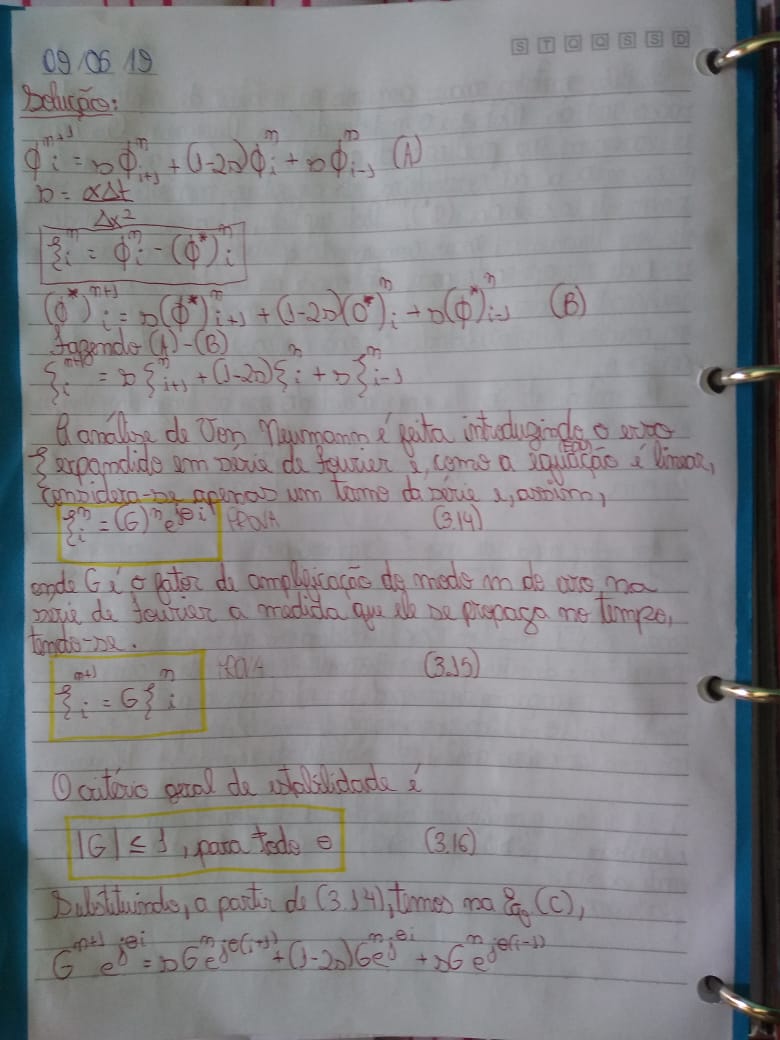 S T Q Q S S D
09/06/19
Solução:
ϕᵢⁿ⁺¹ = sϕᵢ₊₁ⁿ + (1-2s)ϕᵢⁿ + sϕᵢ₋₁ⁿ (A)
s = αΔt
Δx²
ξᵢⁿ = ϕᵢⁿ - (ϕ*)ᵢⁿ
(ϕ*)ᵢⁿ⁺¹ = s(ϕ*)ᵢ₊₁ⁿ + (1-2s)(ϕ*)ᵢⁿ + s(ϕ*)ᵢ₋₁ⁿ (B)
fazendo (A)-(B)
ξᵢⁿ⁺¹ = sξᵢ₊₁ⁿ + (1-2s)ξᵢⁿ + sξᵢ₋₁ⁿ
A análise de Von Neumann é feita introduzindo o erro
ξ expandido em série de fourier e, como a equação é linear,
considera-se apenas um termo da série e, assim,
ξᵢⁿ = (G)ⁿe^(jθi) PROVA (3.14)
onde G é o fator de amplificação do modo m de erro na
série de fourier a medida que ele se propaga no tempo,
tendo-se.
ξᵢⁿ⁺¹ = Gξᵢⁿ PROVA (3.15)
O critério geral de estabilidade é
|G| ≤ 1, para todo θ (3.16)
Substituindo, a partir de (3.14), temos na Eq. (C),
Gⁿ⁺¹e^(jθi) = sGⁿe^(jθ(i+1)) + (1-2s)Gⁿe^(jθi) + sGⁿe^(jθ(i-1))